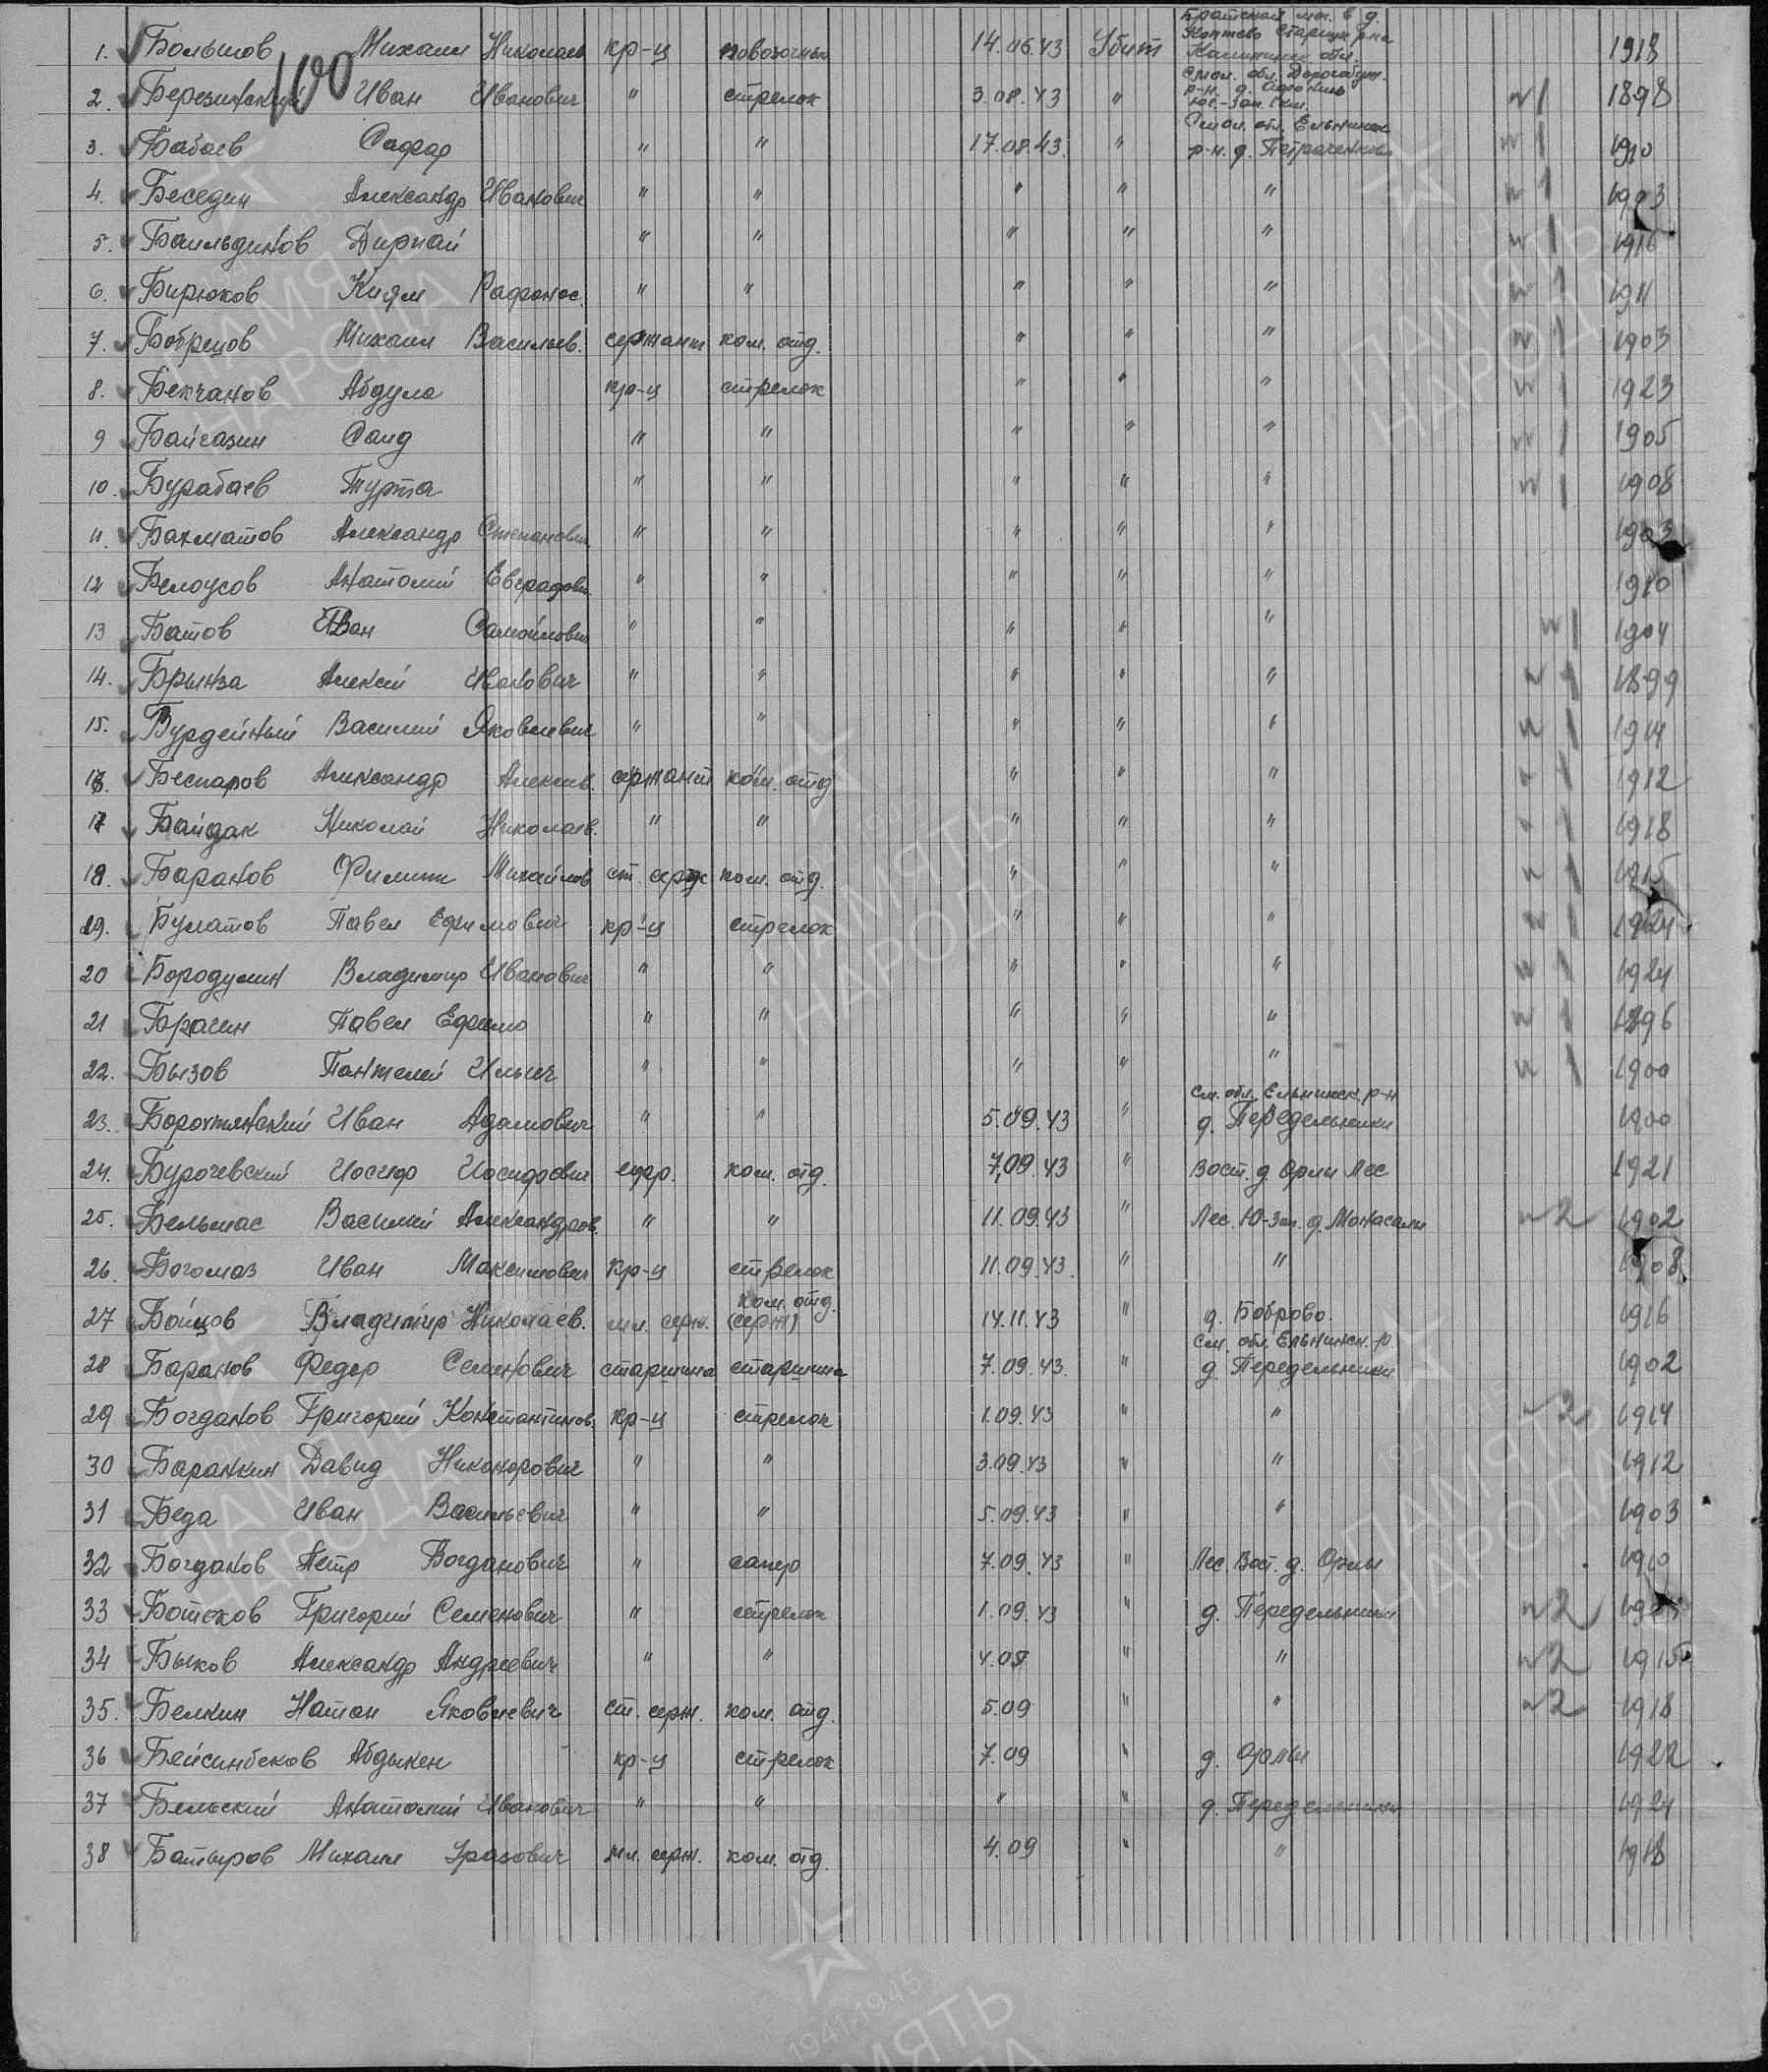 1. Большов Михаил Николаев кр-ц повозочный 14.06.43 Убит Братской мог. в д. Коптево Старицк р-на Калининск обл. 1918
100
2. Березинский Иван Иванович " стрелок 3.08.43 " Смол. обл. Дорогобуж. р-н. д. Юг.-Зап. 1км. 1898
3. Бабаев Сафар " " 17.08.43. " Смол. обл. Ельнинск р-н. д. Петраченково 1910
4. Беседин Александр Иванович " " " " " 1903
5. Баильдинов Дирпай " " " " " 1916
6. Бирюков Киям Рафанос. " " " " " 1911
7. Бобрецов Михаил Васильев. сержант ком. отд. " " " 1903
8. Бекчанов Абдула кр-ц стрелок " " " 1923
9 Байгазин Саид " " " " " 1905
10. Бурабаев Турта " " " " " 1908
11. Бахматов Александр Степанович " " " " " 1903
12 Белоусов Анатолий " " " " " 1910
13 Батов Иван Самойлович " " " " " 1904
14. Брынза Алексей Иванович " " " " " 1899
15. Бурдейный Василий Яковлевич " " " " " 1914
16. Беспаров Александр Алексеев. сержант ком. отд " " " 1912
17 Байдак Николай Николаев. " " " " " 1918
18. Баранов Филипп Михайлов ст. серж ком. отд. " " " 1915
19. Булатов Павел Ефимович кр-ц стрелок " " " 1924
20 Бородулин Владимир Иванович " " " " " 1924
21 Брагин Павел Ефимо " " " " " 1896
22. Бызов Пантелей Ильич " " " " " 1900
23. Борочтянский Иван Адамович " " 5.09.43 " См. обл. Ельнинск. р-н д. Передельники 1900
24. Бурачевский Иосиф Иосифович ефр. ком. отд. 7.09.43 " Вост. д. Орлы Лес 1921
25. Бельмас Василий Александров. " " 11.09.43 " Лес. Ю-Зап. д. Манасали 2 1902
26. Богомаз Иван Максимович кр-ц стрелок 11.09.43. " " 1908
27 Бойцов Владимир Николаев. мл. серж. ком. отд. (серж) 14.11.43 " д. Боброво. 1916
28 Баранов Федор Семенович старшина старшина 7.09.43. " См. обл. Ельнинск. р. д. Передельники 1902
29 Богданов Григорий Константинов. кр-ц стрелок 1.09.43 " " 2 1914
30 Баранкин Давид Никанорович " " 3.09.43 " " 1912
31 Беда Иван Васильевич " " 5.09.43 " " 1903
32 Богданов Петр Богданович " сапер 7.09.43 " Лес. Вост. д. Орлы 1910
33 Ботоков Григорий Семенович " стрелок 1.09.43 " д. Передельники 2
34 Быков Александр Андреевич " " 4.09 " " 2 1915
35. Белкин Натан Яковлевич ст. серж. ком. отд. 5.09 " " 2 1918
36 Бейсинбеков Абдыкен кр-ц стрелок 7.09 " д. Орлы 1922
37 Бельский Анатолий Иванович " " " " д. Передельники 1924
38 Батыров Михаил Уразович мл. серж. ком. отд. 4.09 " " 1918
ПАМЯТЬ НАРОДА
1941-1945